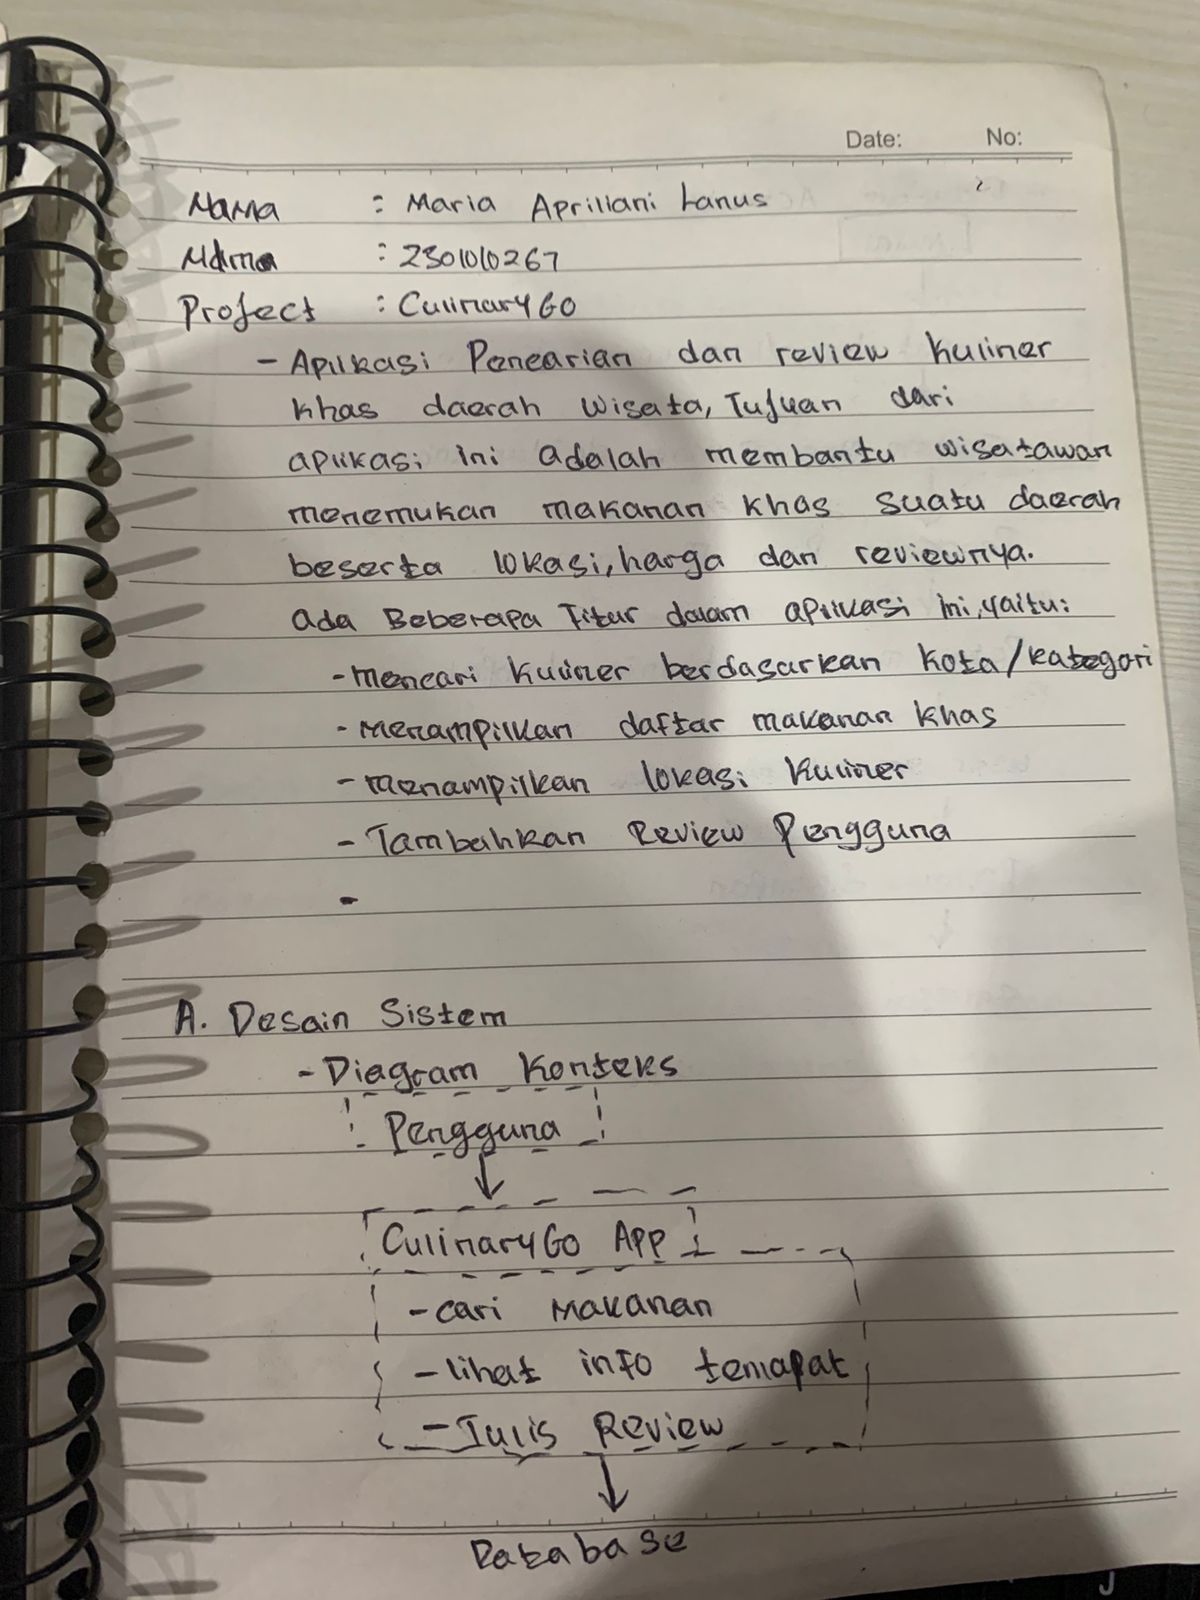 Date: No:
Nama : Maria Aprillani Lanus
: 230101010267
Project : CulinaryGo
- Aplikasi Pencarian dan review kuliner
khas daerah wisata, Tujuan dari
aplikasi ini adalah membantu wisatawan
menemukan makanan khas suatu daerah
beserta lokasi, harga dan reviewnya.
Ada Beberapa Fitur dalam aplikasi ini, yaitu:
- mencari kuliner berdasarkan kota/kategori
- Menampilkan daftar makanan khas
- menampilkan lokasi kuliner
- Tambahkan Review Pengguna
-
A. Desain Sistem
- Diagram Konteks
Pengguna
CulinaryGo APP
- cari Makanan
- lihat info temapat
- Tulis Review
Database